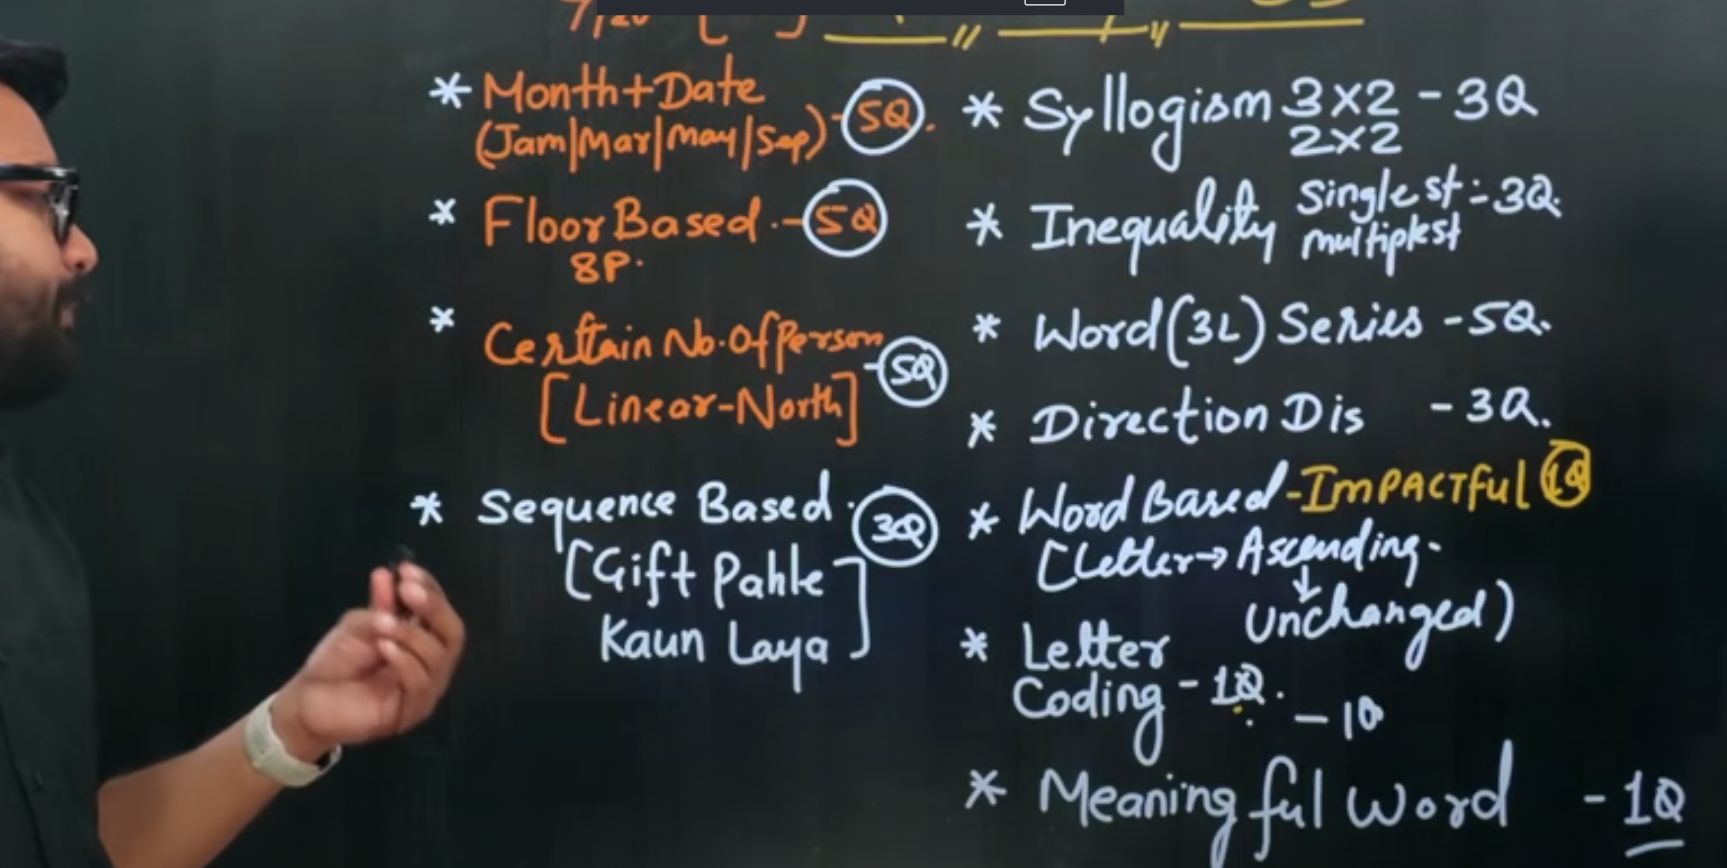 7/20 [ ]
* Month+Date
(Jam|Mar|May|Sep) - 5Q.
* Floor Based. - 5Q
8P.
* Certain No. Of Person
[Linear-North] - 5Q
* Sequence Based. 3Q
[Gift Pahle
Kaun Laya]
* Syllogism 3x2 - 3Q
2x2
* Inequality Single st - 3Q.
multiplest
* Word (3L) Series - 5Q.
* Direction Dis - 3Q.
* Word Based - ImPACTful 1Q
[Letter → Ascending.
↓
Unchanged)
* Letter
Coding - 1Q.
- 1Q
* Meaningful Word - 1Q